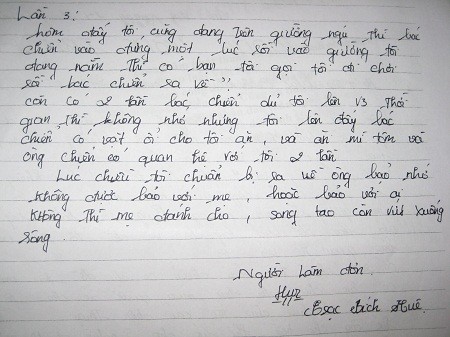 Lần 3:
hôm đấy tôi cũng đang trên giường ngủ thì bác
chiến vào đứng một lúc rồi vào giường tôi
đang nằm thì có bạn tôi gọi tôi đi chơi
rồi bác chiến ra về
còn có 2 lần bác chiến dủ tôi lên Thời
gian thì không nhớ nhưng tôi lên đấy bác
chiến có vặt ổi cho tôi ăn, và ăn mì tôm và
ông chiến có quan hệ với tôi 2 lần
Luc chiều tôi chuẩn bị ra về ông bảo nhớ
không được bảo với mẹ, hoặc bảo với ai
không thì mẹ đánh cho, song tao còn vứt xuống
sông.
Người làm đơn
Bích Huê